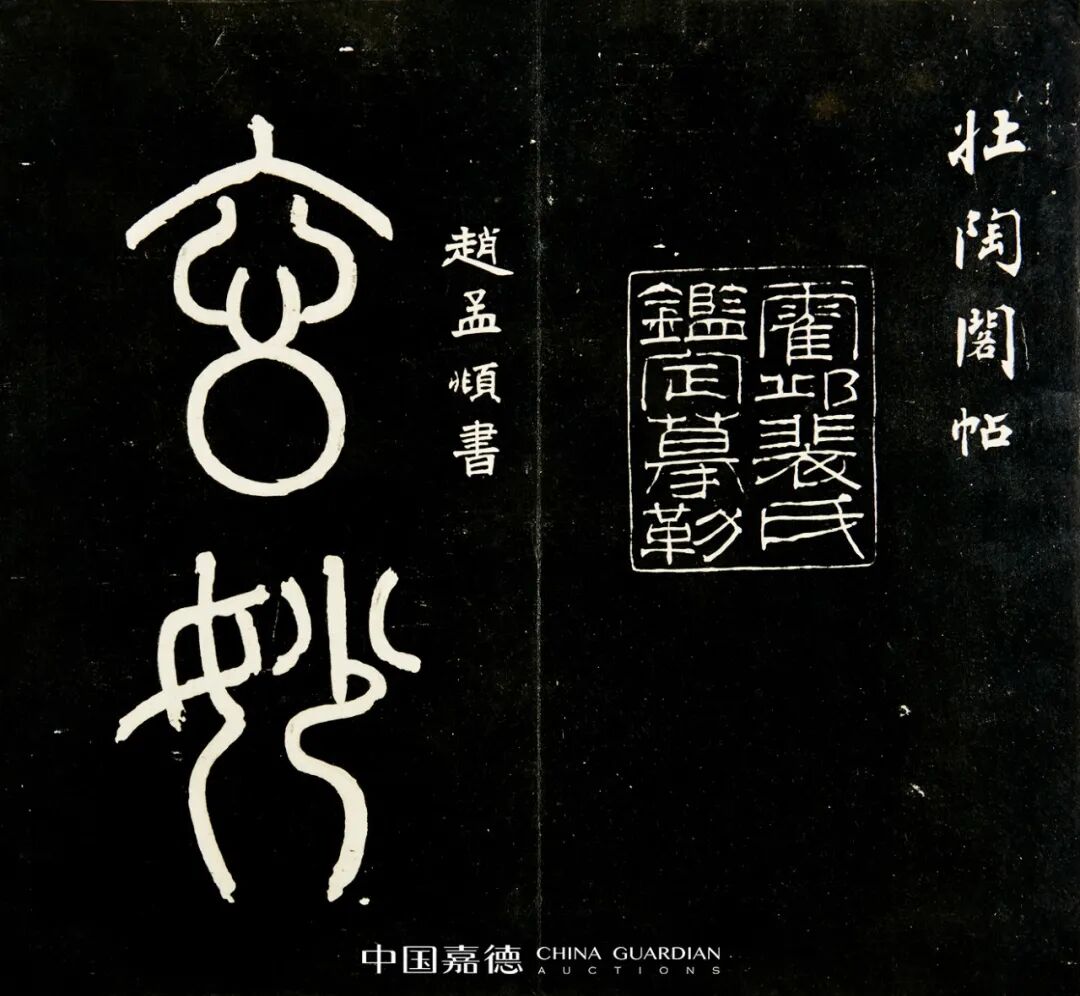 壯陶閣帖
霍邱裴氏
鑑定摹勒
趙孟頫書
玄妙
中国嘉德 CHINA GUARDIAN
AUCTIONS